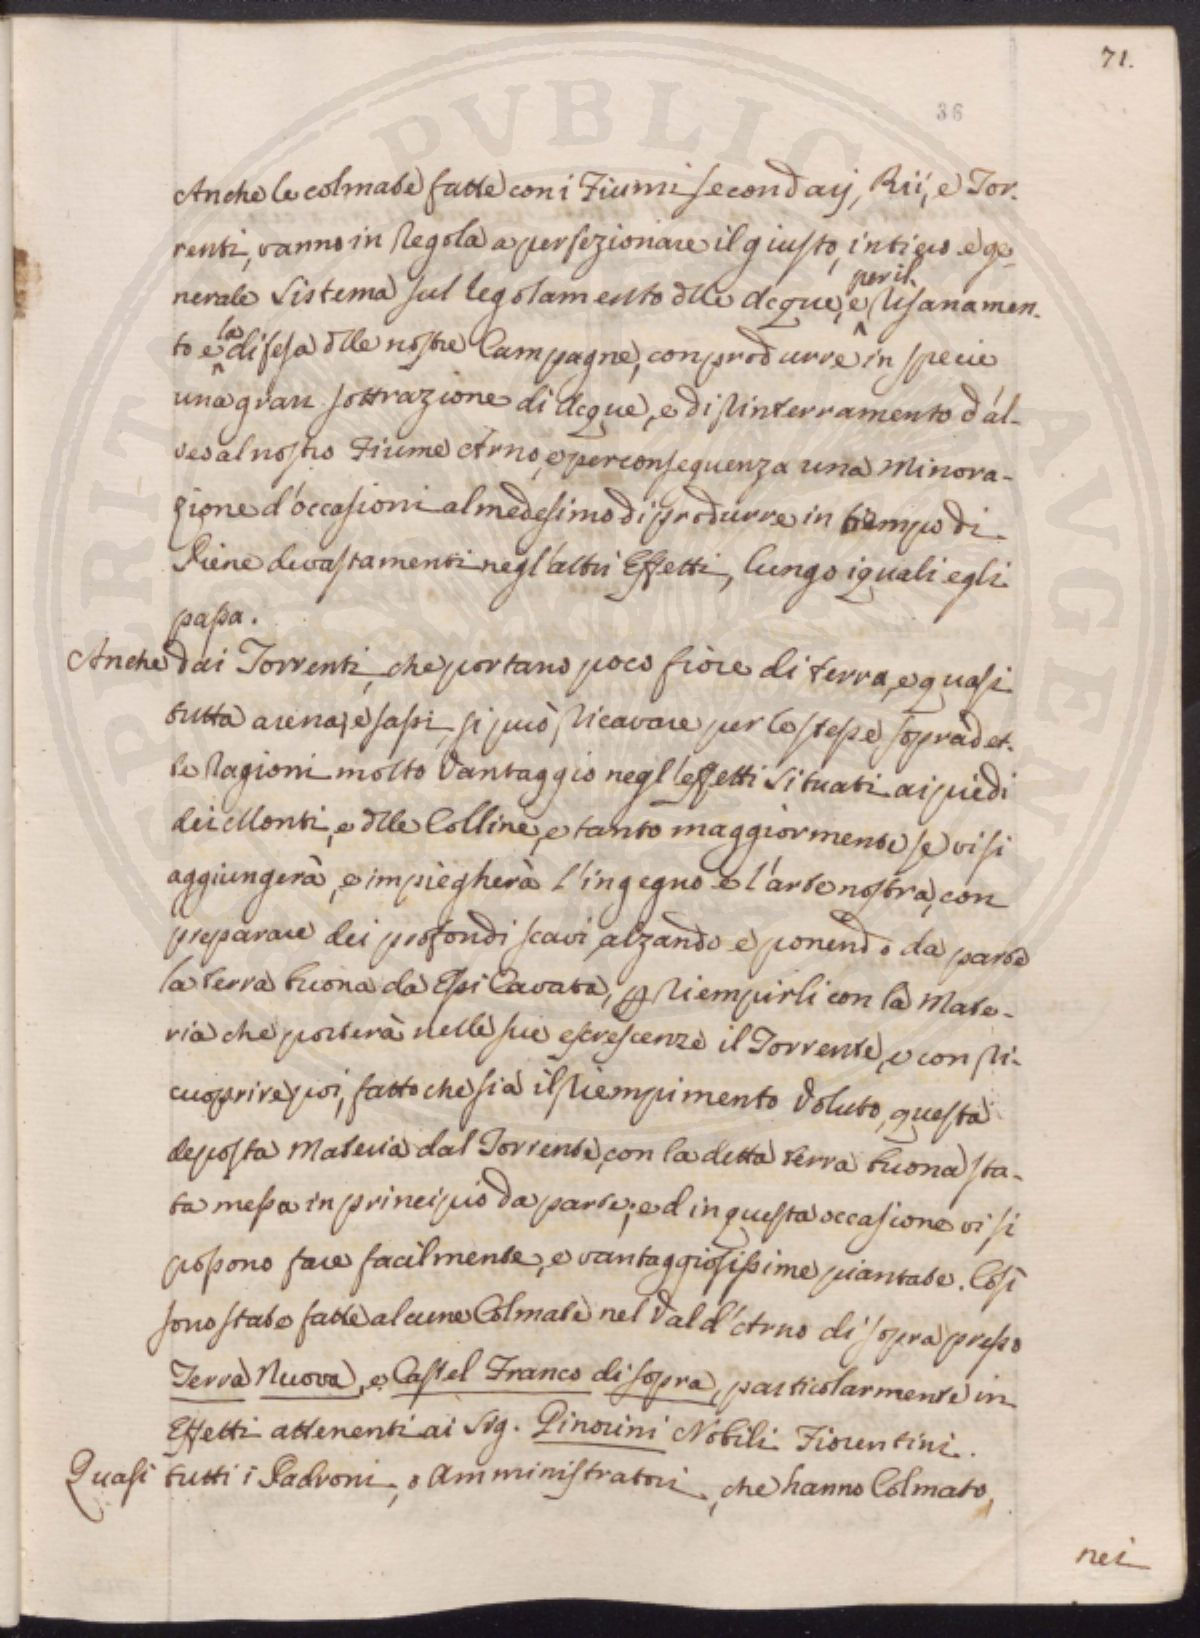 71.
36
Anche le colmate fatte con i Fiumi secondarj, Rii, e Tor-
renti, vanno in Regola a perfezionare il giusto, intiero e ge-
nerale Sistema sul regolamento dlle Acque, e per il Risanamen-
to e la difesa dlle nostre Campagne, con produrre in specie
una gran sottrazione di Acque, e di Rinterramento d'al-
veo al nostro Fiume Arno, e per conseguenza una Minora-
zione d'occasioni al medesimo di produrre in tempo di
Piene devastamenti negl'altri Effetti, lungo i quali egli
passa.
Anche dai Torrenti, che portano poco fiore di terra, e quasi
tutta arena, e sassi, si può Ricavare per le stesse sopradet-
te Ragioni molto Vantaggio negl'effetti Situati ai piedi
dei Monti, e dlle Colline, e tanto maggiormente se vi si
aggiungerà, e impiegherà l'ingegno e l'arte nostra, con
preparare dei profondi scavi, alzando e ponendo da parte
la terra buona da Essi Cavata, p Riempirli con la Mate-
ria che porterà nelle sue escrescenze il Torrente, e con Ri-
cuoprire poi, fatto che sia il Riempimento Voluto, questa
deposta Materia dal Torrente, con la detta terra buona sta-
ta messa in principio da parte; ed in questa occasione vi si
possono fare facilmente, e vantaggiosissime piantate. Così
sono state fatte alcune Colmate nel Val d'Arno di sopra presso
Terra Nuova, e Castel Franco di sopra, particolarmente in
Effetti attenenti ai Sig. Pinorini Nobili Fiorentini.
Quasi tutti i Padroni, o Amministratori, che hanno Colmato,
nei